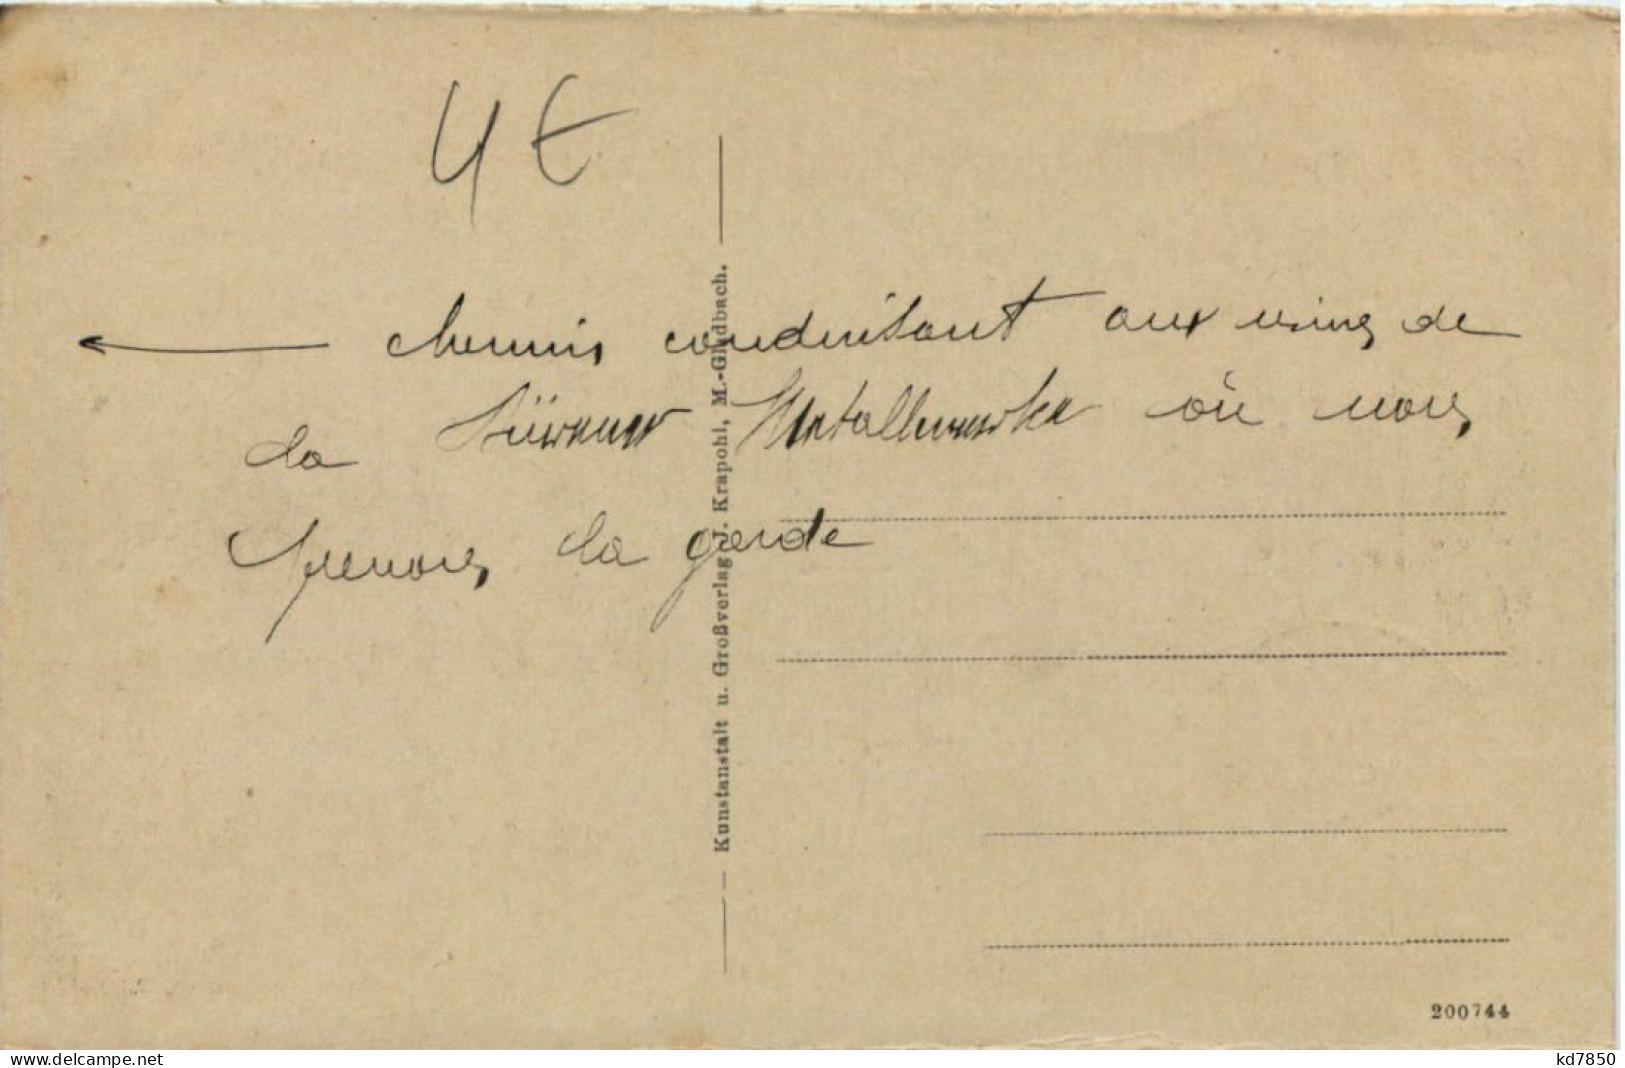 4 €
chemin conduisant aux usines de
la Dürener Metallwerke où nous
prenons la garde
Kunstanstalt u. Großverlag J. Krapohl, M.-Gladbach.
200744
www.delcampe.net
kd7850